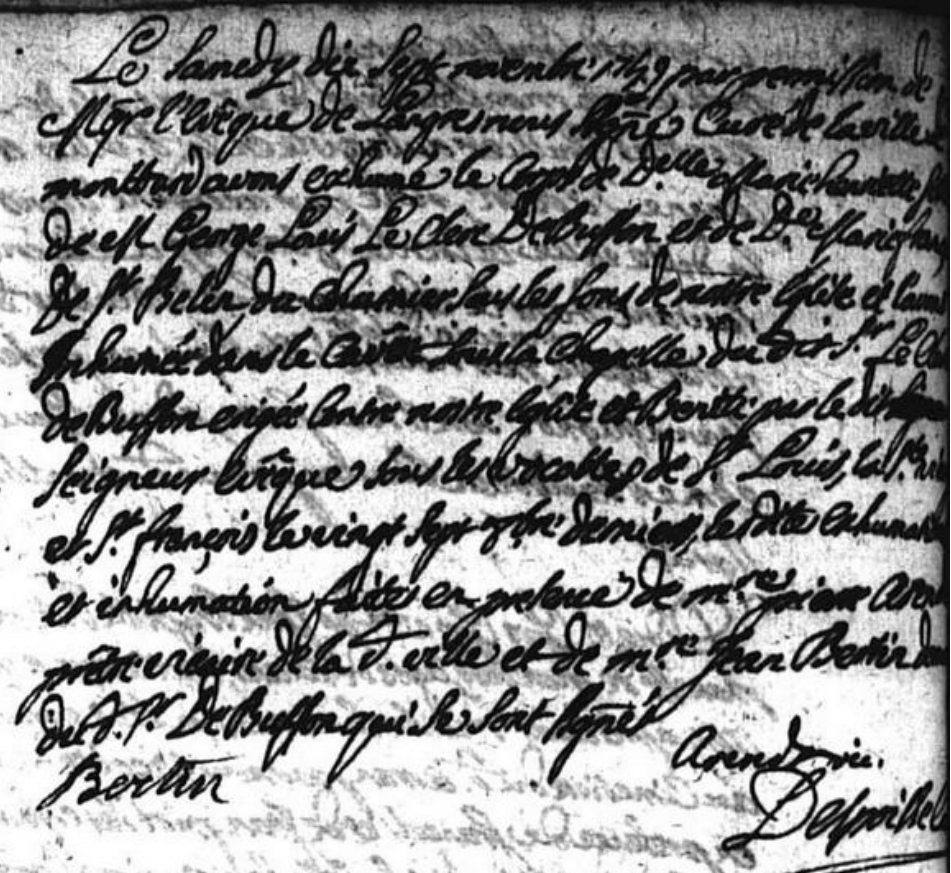 Le Samedy dix Sept novembr. 1749 par permission de
Mgr l'Evêque de Langres nous Signé Curé de la ville
montbard avons exhumé le Corps de D.elle Marie henriette
de M. George Louis Le Clerc De Buffon et de D.e Marie fran
De St. Belin, du Charnier sous les fons de notre Eglise et l'avons
Inhumée dans le Caveau sous la Chapelle du dit Sr. Le Cl
de Buffon erigée Contre notre Eglise et Benitte par le dit
Seigneur Evêque sous les vocatles de St. Louis, la Ste.
et St. françois le vingt Sept 7bre. dernier, les dites exhumati
et inhumation faites en presence de m.re pierre Aren
prêtre vicaire de la d. ville et de m.re Jean Bertin
du d. Sr. De Buffon qui Se Sont Signés
Arend vic.
Bertin